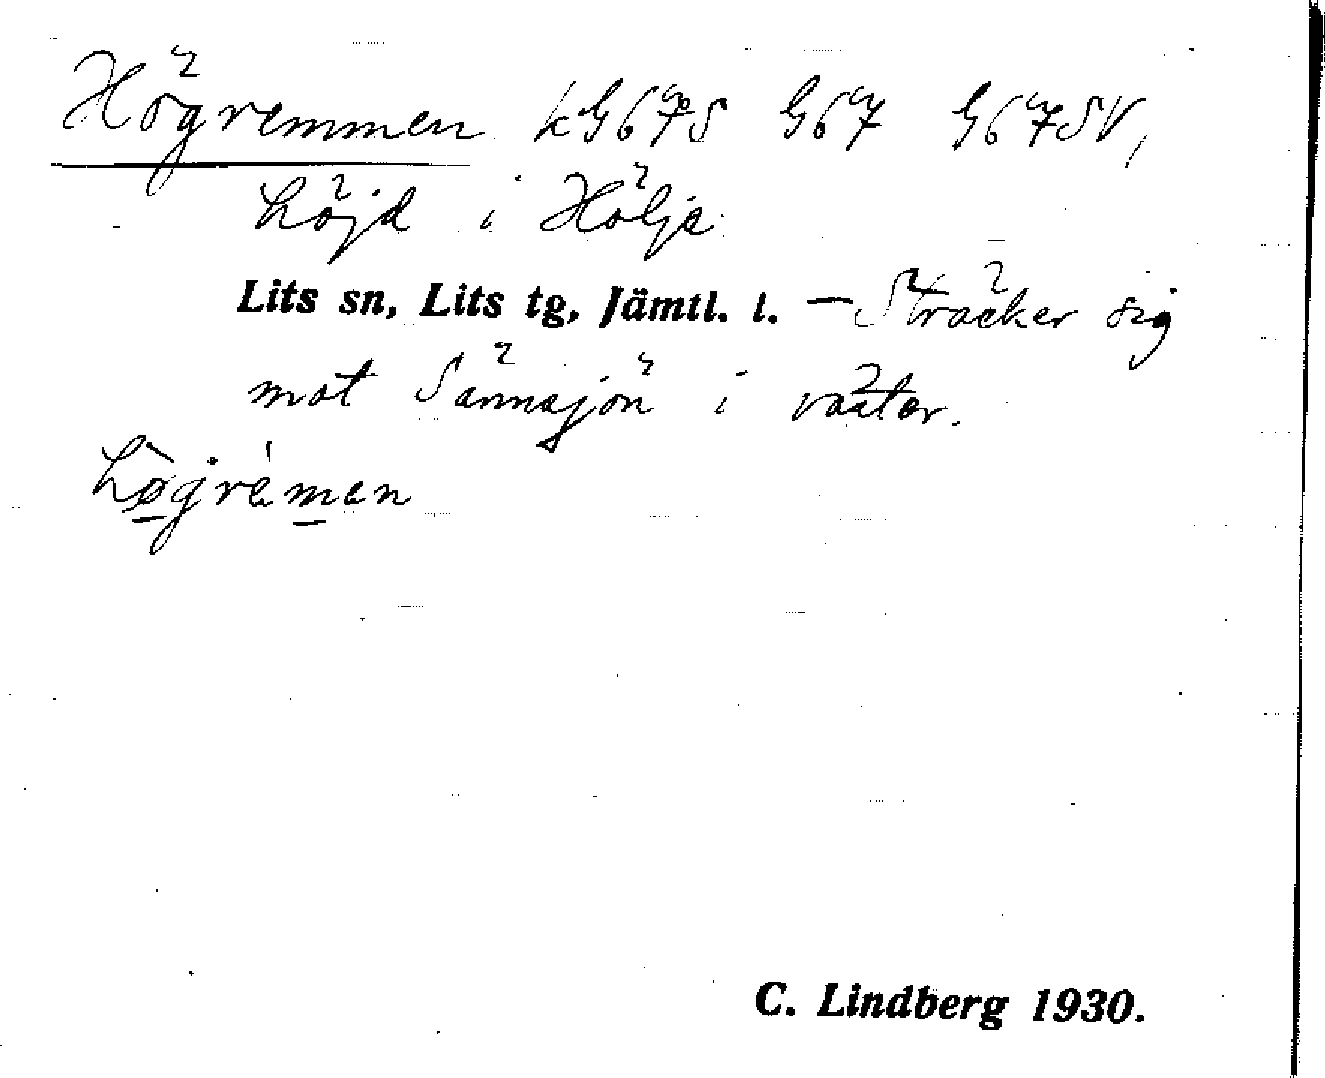 Högremmen kG67S G67 G67SV,
höjd i Hölje
Lits sn, Lits tg, Jämtl. l. — Sträcker sig
mot Sännsjön i väster.
C. Lindberg 1930.